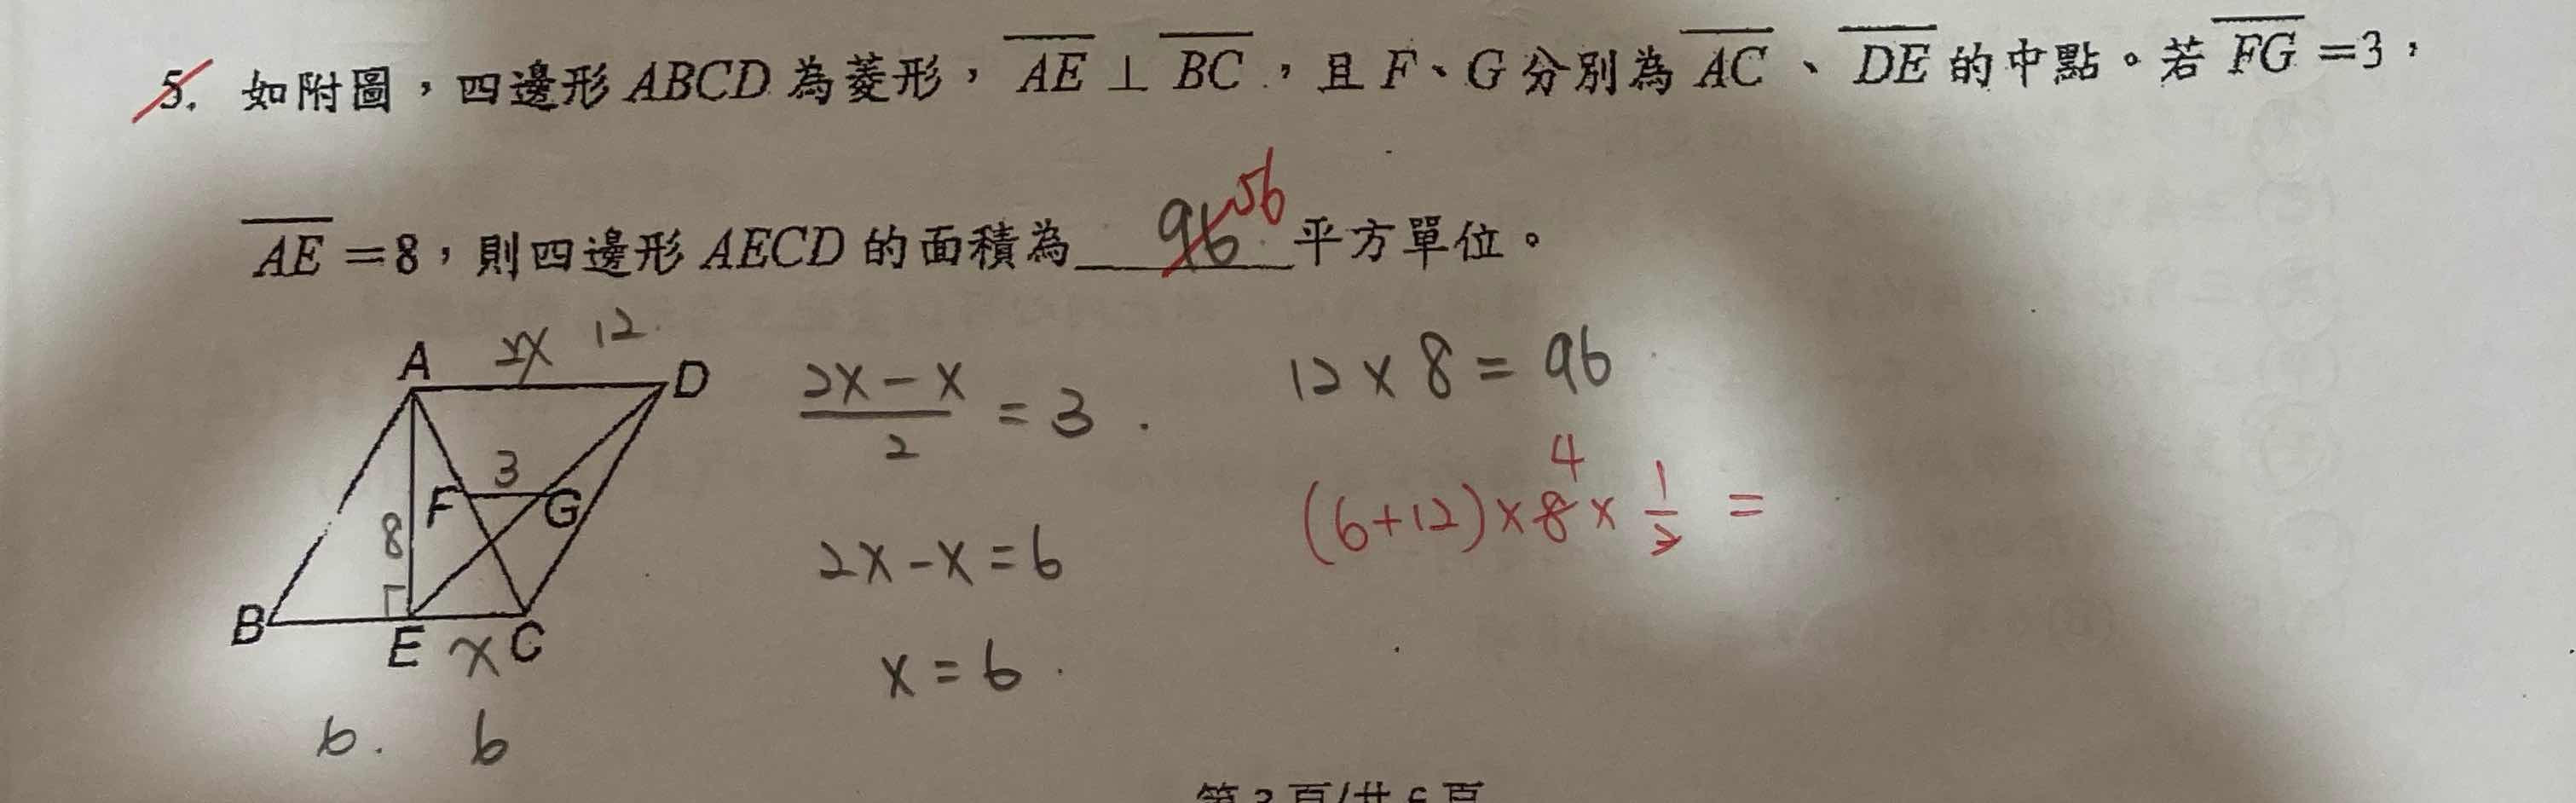 5. 如附圖，四邊形 ABCD 為菱形，AE ⊥ BC，且 F、G 分別為 AC、DE 的中點。若 FG =3，
AE =8，則四邊形 AECD 的面積為 96 56 平方單位。
A 2x 12 D
3
F G
8
B E x C
6. 6
(2x - x)/2 = 3.
2x - x = 6
x = 6.
12 × 8 = 96
4
(6+12) × 8 × 1/2 =
第 3 頁/共 6 頁